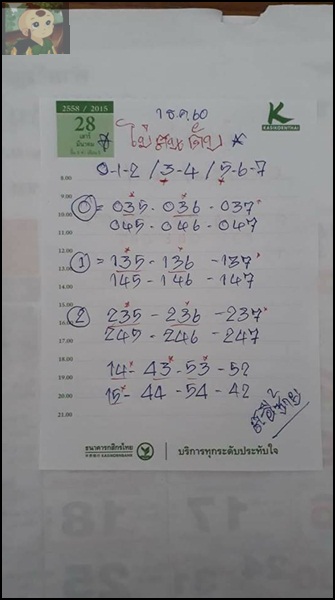 2558 / 2015
28
เสาร์
มีนาคม
1 ธ.ค. 60
KASIKORNTHAI
* ไม่สนเด้บ *
0-1-2 / 3-4 / 5-6-7
8.00
9.00
10.00
11.00
12.00
13.00
14.00
15.00
16.00
17.00
18.00
19.00
20.00
21.00
0 = 035 - 036 - 037
045 - 046 - 047
1 = 135 - 136 - 137
145 - 146 - 147
2 235 - 236 - 237
245 - 246 - 247
14 - 43 - 53 - 52
15 - 44 - 54 - 42
ธนาคารกสิกรไทย
บริการทุกระดับประทับใจ